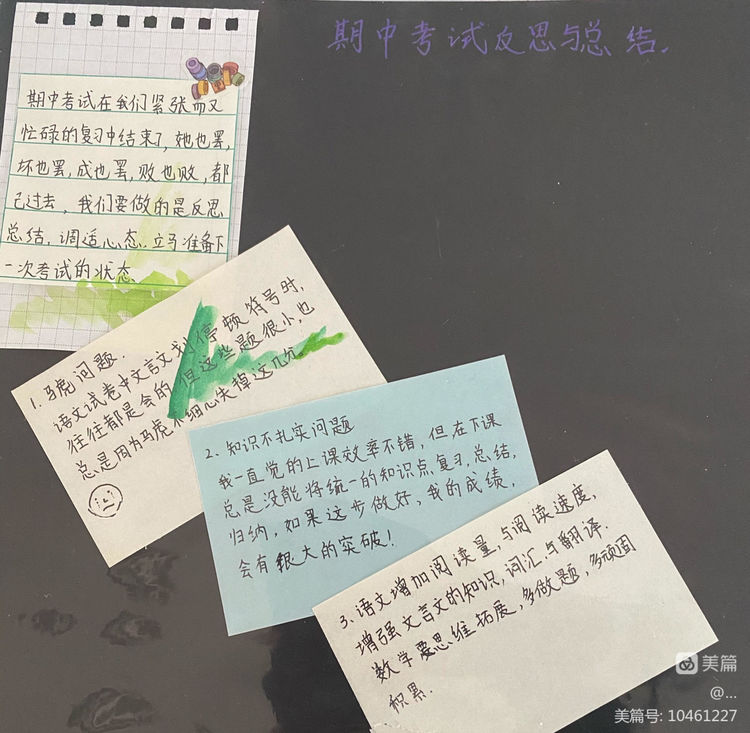 期中考试反思与总结.
期中考试在我们紧张而又
忙碌的复习中结束了,她也罢,
坏也罢,成也罢,败也败,都
已过去,我们要做的是反思
总结,调适心态,立马准备下
一次考试的状态、
1.马虎问题.
语文试卷中文言文划停顿符号时,
往往都是会的,但这些题很小,也
总是因为马虎不细心失掉这几分。
2.知识不扎实问题
我一直觉的上课效率不错,但在下课
总是没能将统一的知识点复习,总结,
归纳,如果这步做好,我的成绩,
会有很大的突破!
3.语文增加阅读量,与阅读速度,
增强文言文的知识,词汇与翻译.
数学要思维拓展,多做题,多顽固
积累.
美篇
@...
美篇号: 10461227